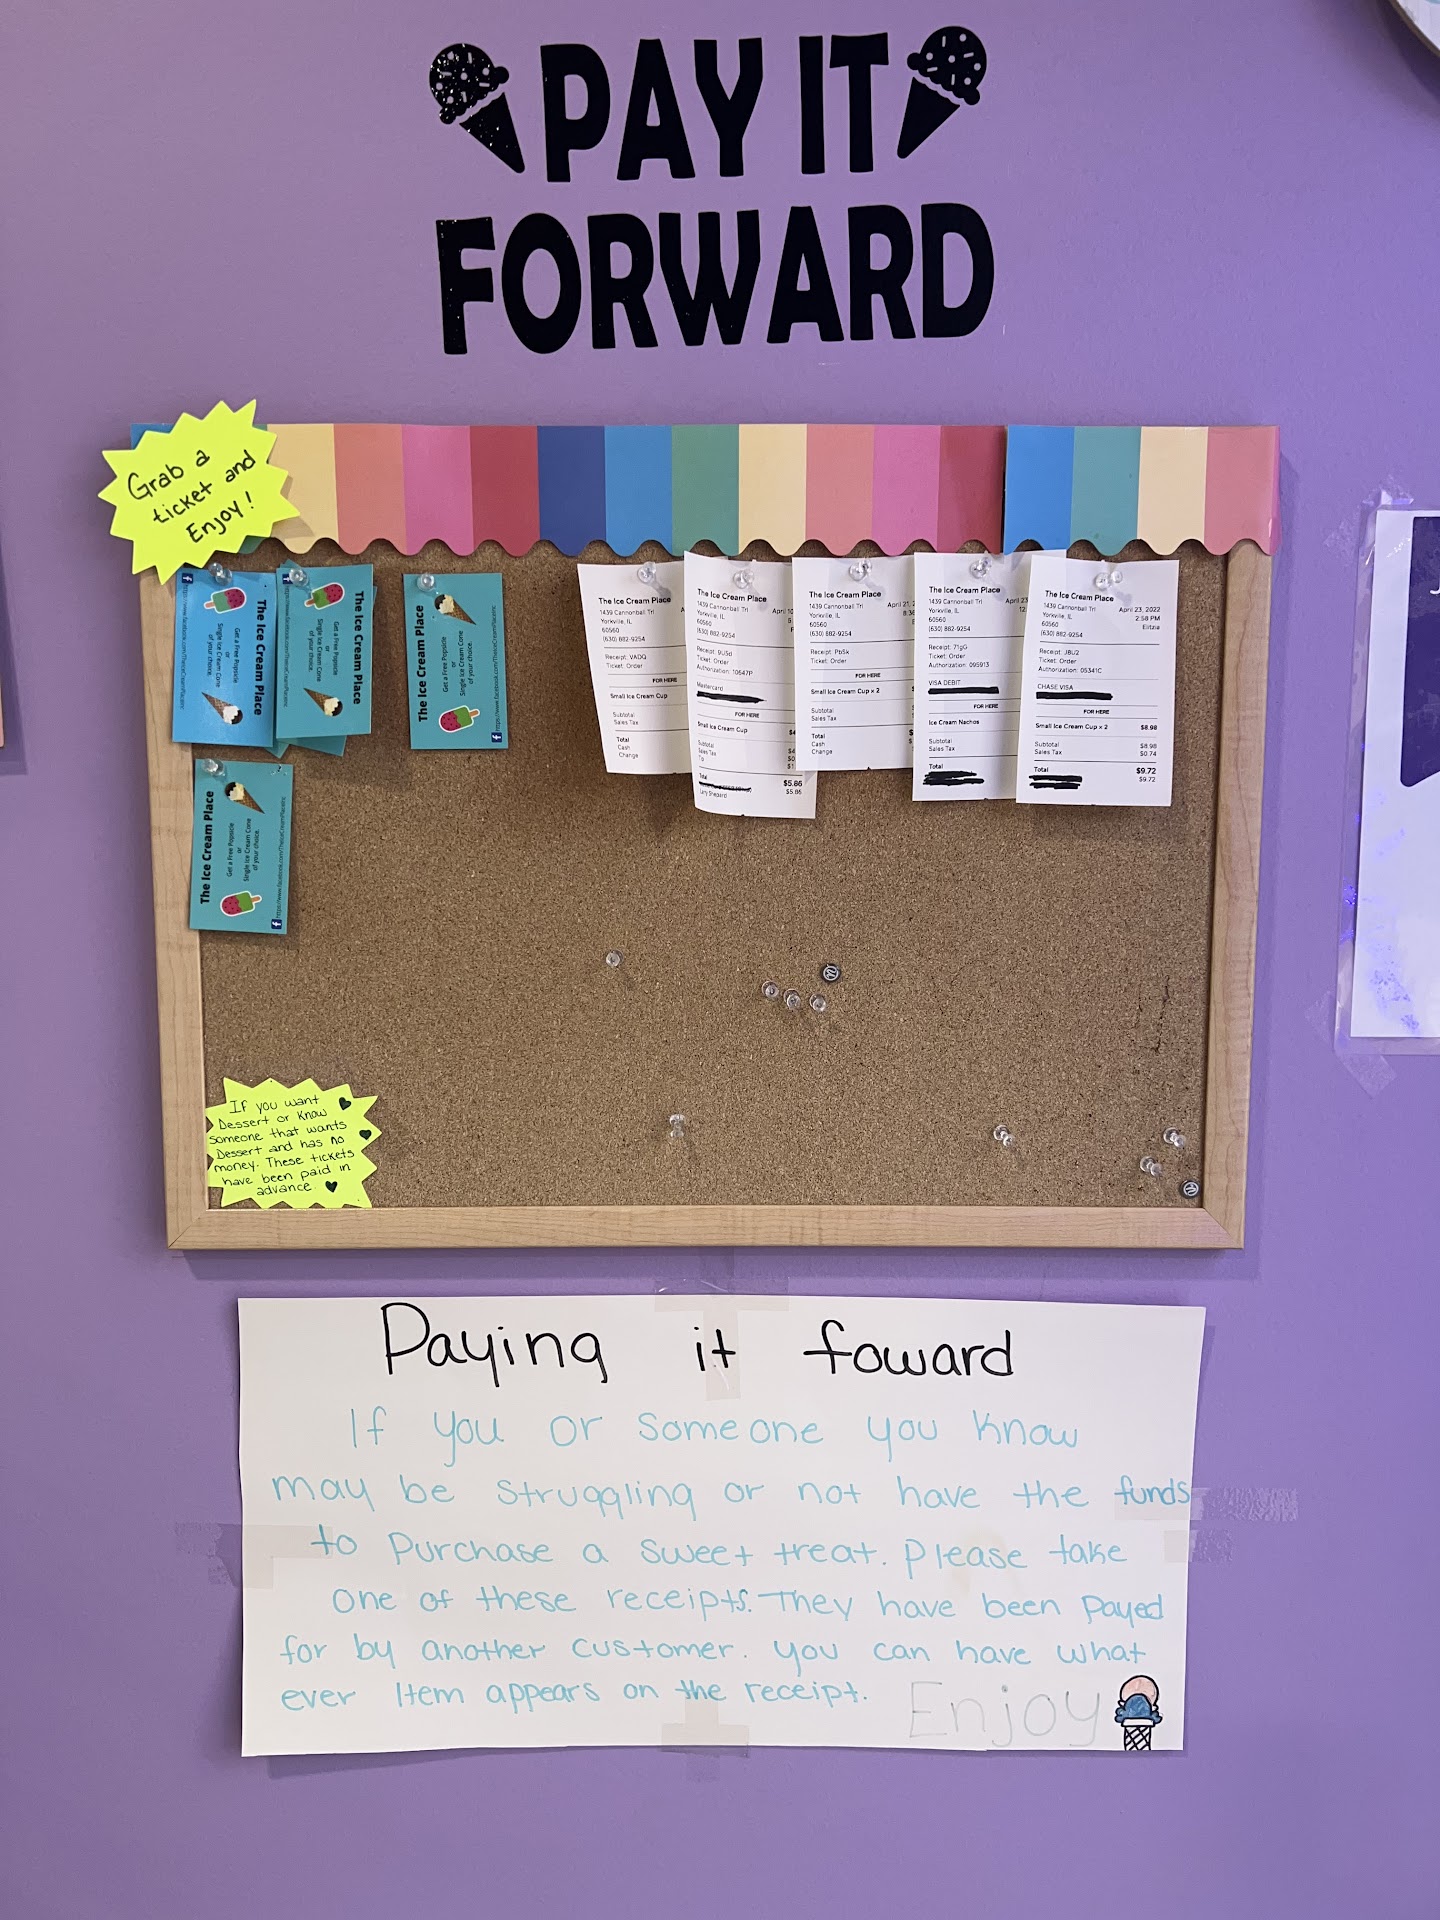 PAY IT
FORWARD
Grab a
ticket and
Enjoy!
The Ice Cream Place
Get a Free Popsicle
or
Single Ice Cream Cone
of your choice.
https://www.facebook.com/TheIceCreamPlaceInc
The Ice Cream Place
Get a Free Popsicle
or
Single Ice Cream Cone
of your choice.
https://www.facebook.com/TheIceCreamPlaceInc
The Ice Cream Place
Get a Free Popsicle
or
Single Ice Cream Cone
of your choice.
https://www.facebook.com/TheIceCreamPlaceInc
The Ice Cream Place
Get a Free Popsicle
or
Single Ice Cream Cone
of your choice.
https://www.facebook.com/TheIceCreamPlaceInc
The Ice Cream Place
1439 Cannonball Trl
Yorkville, IL
60560
(630) 882-9254
Receipt: VADQ
Ticket: Order
FOR HERE
Small Ice Cream Cup
Subtotal
Sales Tax
Total
Cash
Change
The Ice Cream Place
1439 Cannonball Trl April 10
Yorkville, IL
60560
(630) 882-9254
Receipt: 9U5d
Ticket: Order
Authorization: 10647P
Mastercard
FOR HERE
Small Ice Cream Cup
Subtotal
Sales Tax
Tip
Total $5.86
$5.86
The Ice Cream Place
1439 Cannonball Trl April 21,
Yorkville, IL
60560
(630) 882-9254
Receipt: Pb5k
Ticket: Order
FOR HERE
Small Ice Cream Cup × 2
Subtotal
Sales Tax
Total
Cash
Change
The Ice Cream Place
1439 Cannonball Trl April 23,
Yorkville, IL
60560
(630) 882-9254
Receipt: 71gG
Ticket: Order
Authorization: 095913
VISA DEBIT
FOR HERE
Ice Cream Nachos
Subtotal
Sales Tax
Total
The Ice Cream Place
1439 Cannonball Trl April 23, 2022
Yorkville, IL 2:58 PM
60560 Elitzia
(630) 882-9254
Receipt: J8U2
Ticket: Order
Authorization: 05341C
CHASE VISA
FOR HERE
Small Ice Cream Cup × 2 $8.98
Subtotal $8.98
Sales Tax $0.74
Total $9.72
$9.72
If you want
Dessert or know
someone that wants
Dessert and has no
money. These tickets
have been paid in
advance.
Paying it foward
If you or someone you know
may be struggling or not have the funds
to purchase a sweet treat. Please take
one of these receipts. They have been payed
for by another customer. You can have what
ever Item appears on the receipt.
Enjoy